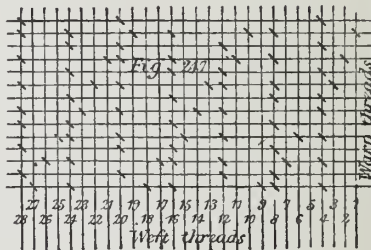 Fig 247
Warp threads
27 25 23 21 19 17 15 13 11 9 7 5 3 1
28 26 24 22 20 18 16 14 12 10 8 6 4 2
Weft threads